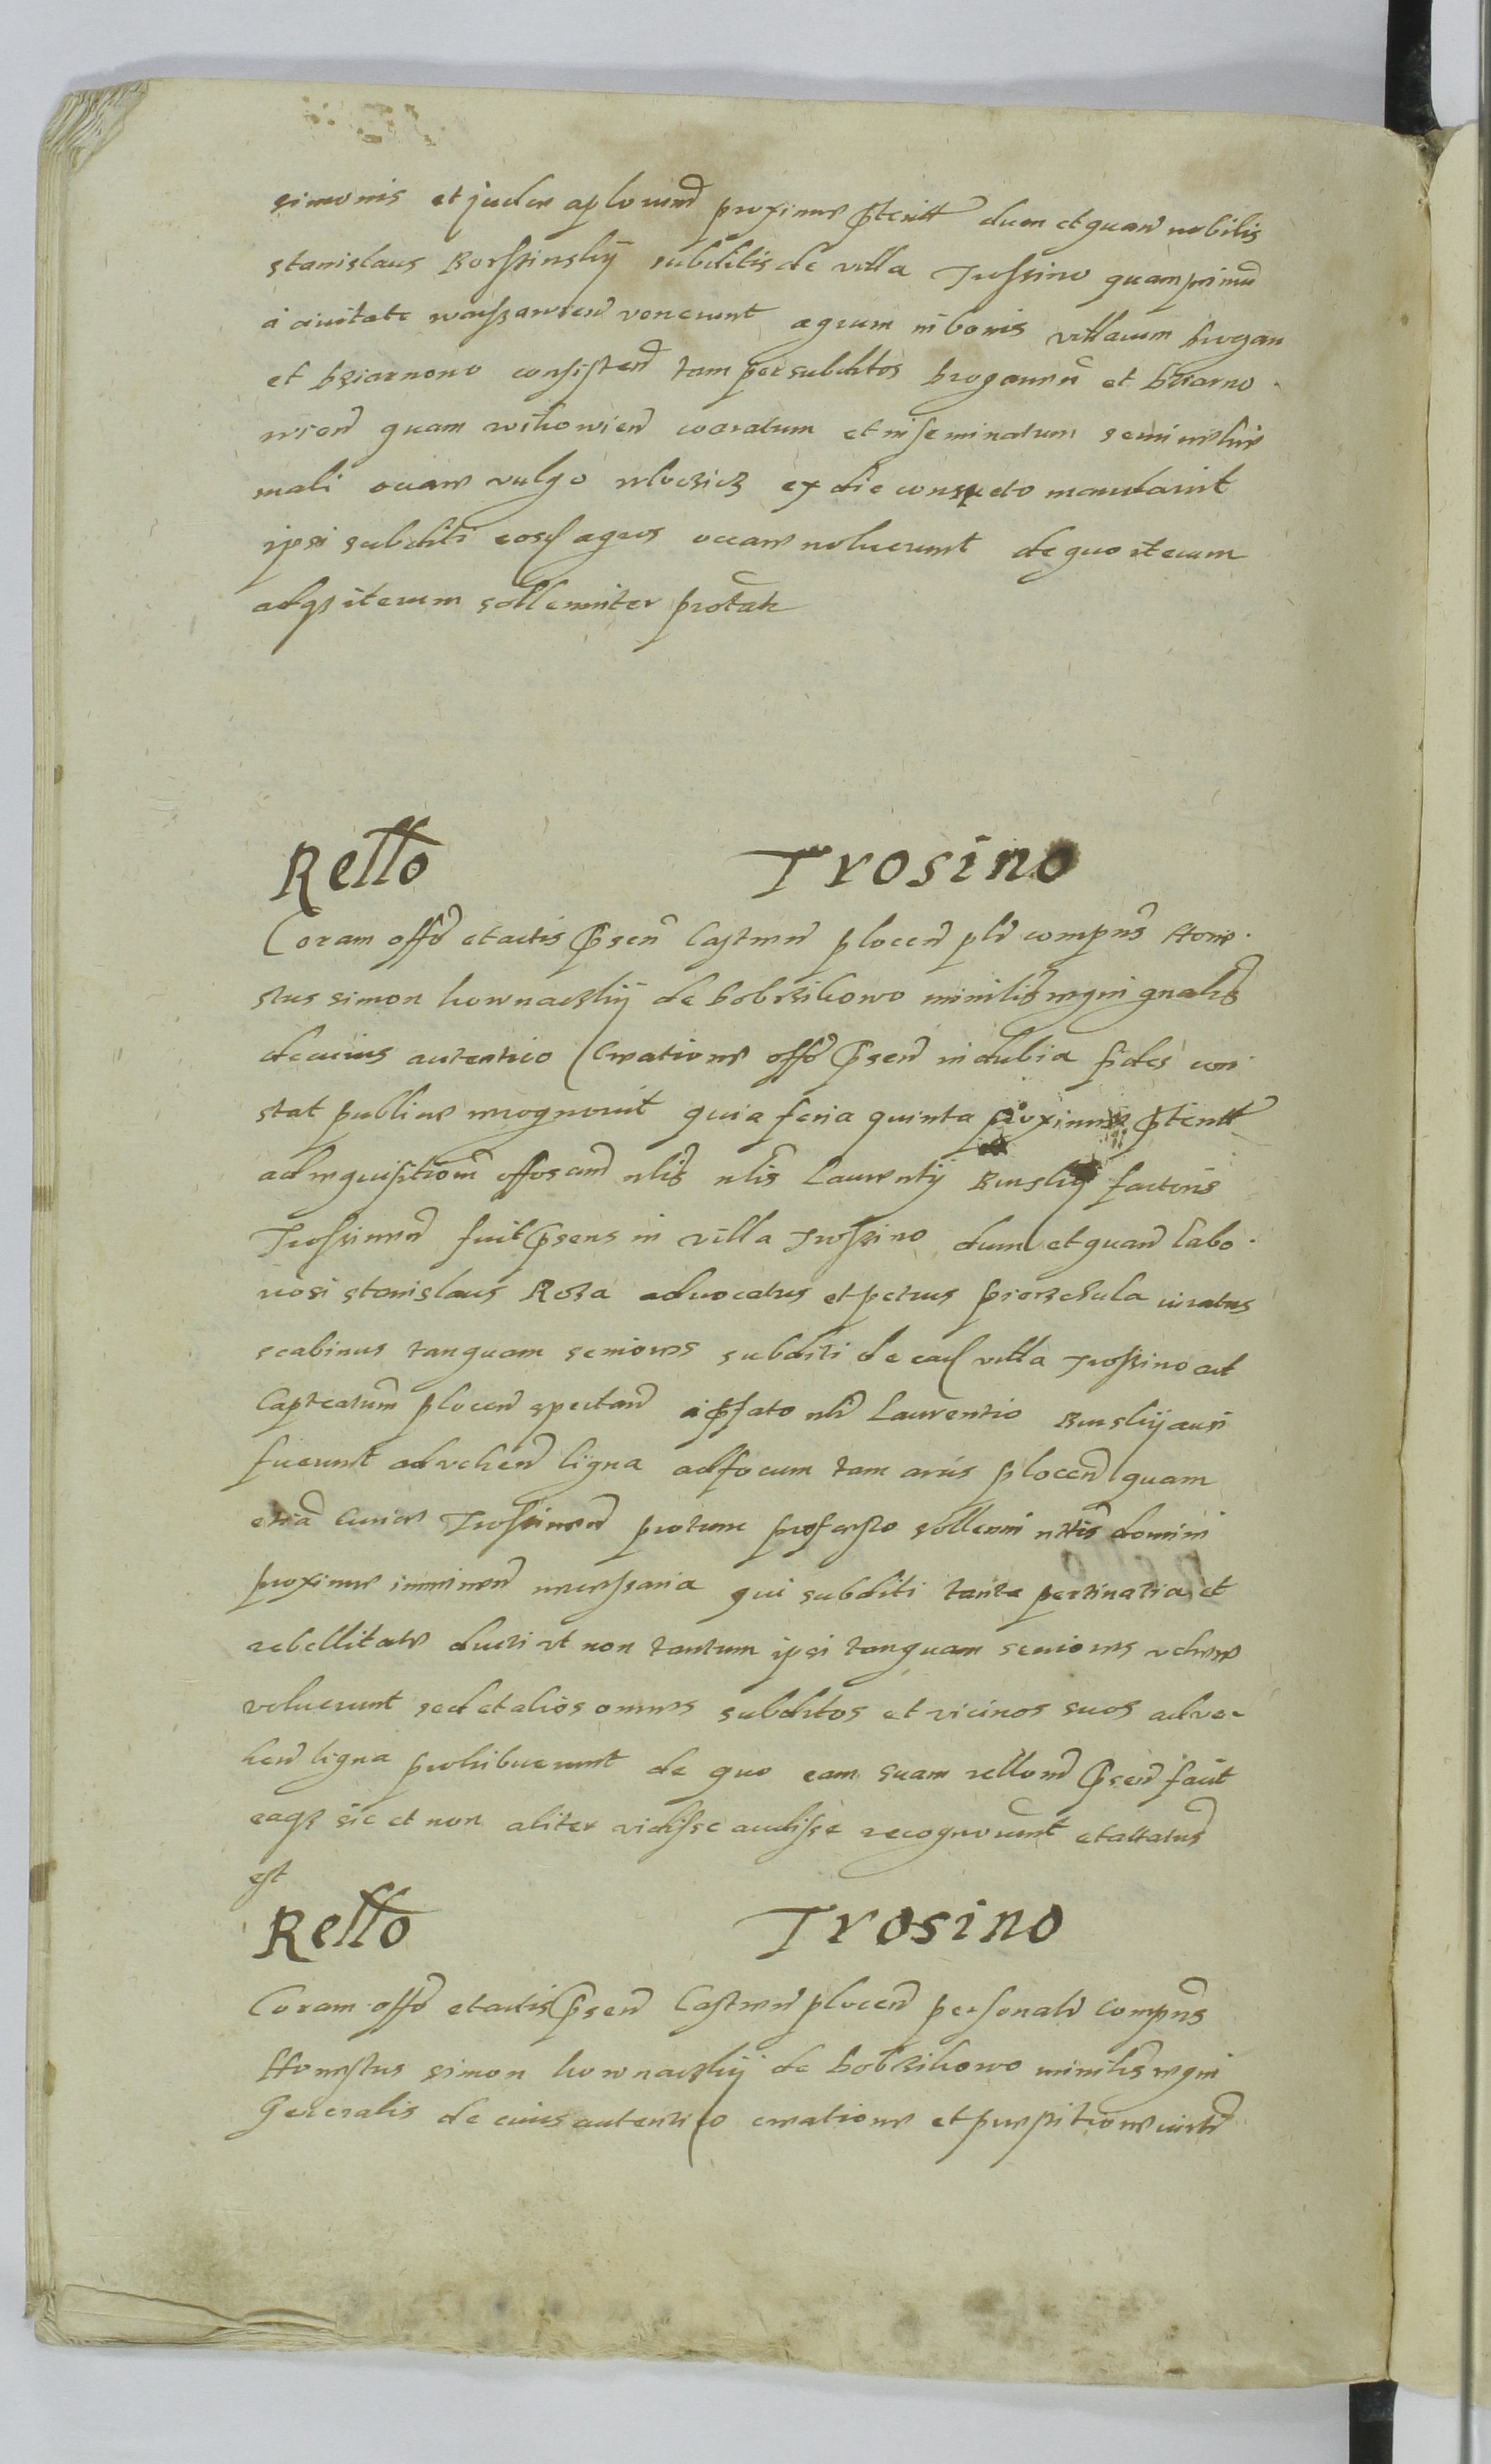 simonis et judae aplorum proxime pterit dum et quando nobilis
stanislaus Borssinskij subditis de villa Trossino quamprimu
a civitate warszavien venerunt agrum in bonis villarum brogan
et bziarnono consisten tam per subditos broganien et bziarno
wien quam witowien coaratum et inseminatum semine
mali occare vulgo wloczicz ex die consueto mandavit
ipsi subditi eosd agros occare noluerunt de quo iterum
adqz iterum sollemniter protatr
Rello Trosino
Coram offo et actis psen Castren plocen plr compns Hone
stus simon kownaczkij de bobrzikowo minilis regni gnalis
de cuius autentico Creatione offo psen indubia fides con
stat publice recognovit quia feria quinta proxime pterit
ad requisitionem nlis Laurentij Rinskij factoris
Trossinen fuit psens in villa Trossino dum et quando labo
riosi stanislaus Roza advocatus et petrus piorzchala iuratus
scabinus tanquam seniores subditi de ead villa Trossino ad
Capteatum plocen spectan a pfato nli Laurentio Rinskij ausi
fuerunt advehen ligna ad focum tam arcis plocen quam
etia Curiae Trossinen pro tunc pro festo sollenni nttis domini
proxime imminen necessaria qui subditi tanta pertinatia et
rebellitate ducti ut non tantum ipsi tanquam seniores vehere
voluerunt sed et alios omnes subditos et vicinos suos adve
hen ligna prohibuerunt de quo eam suam rellonem psen facit
eaqz sic et non aliter vidisse audisse recognovit et
est
Rello Trosino
Coram offo et actis psen Castren plocen personalr Compns
Honestus simon kownaczkij de bobrzikowo minilis regni
Generalis de cuius autentico creatione et